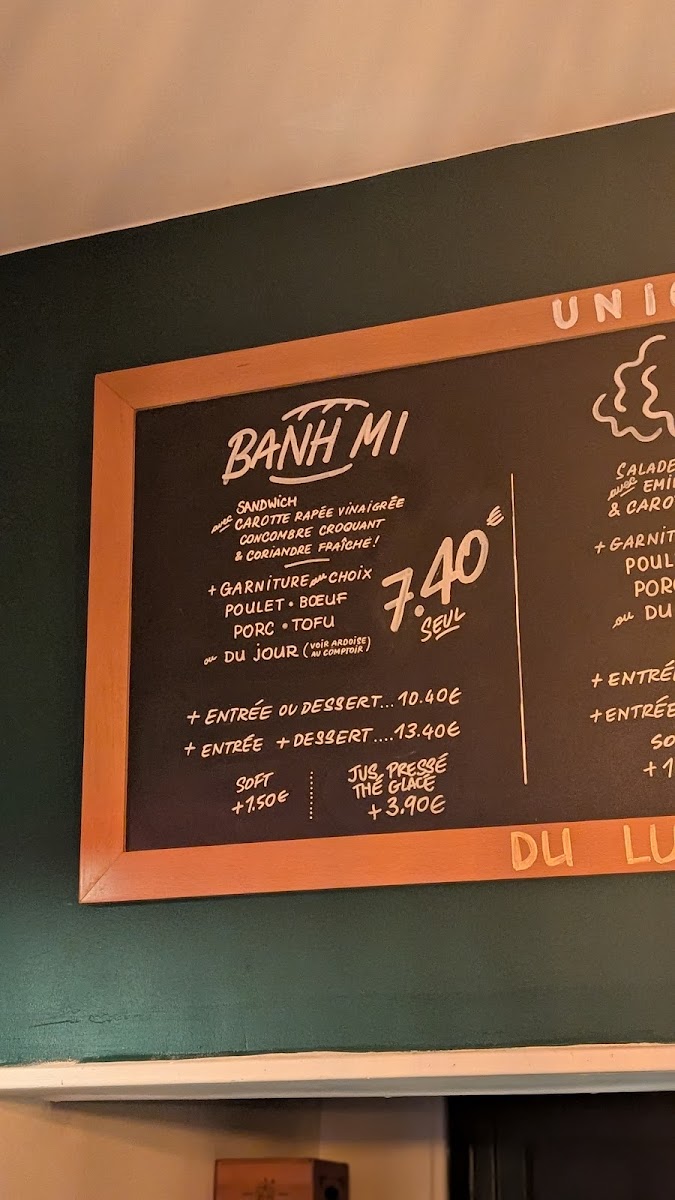 BANH MI
SANDWICH
avec CAROTTE RAPÉE VINAIGRÉE
CONCOMBRE CROQUANT
& CORIANDRE FRAÎCHE !
+ GARNITURE au CHOIX
POULET • BŒUF
PORC • TOFU
ou DU JOUR (VOIR ARDOISE
AU COMPTOIR)
7.40€
SEUL
+ ENTRÉE OU DESSERT... 10.40€
+ ENTRÉE + DESSERT.... 13.40€
SOFT
+1.50€
JUS PRESSÉ
THÉ GLACÉ
+ 3.90€
UNI
SALADE
avec
& CARO
+ GARNIT
POUL
POR
ou DU
+ ENTRÉ
+ ENTRÉE
SO
+ 1
DU LU